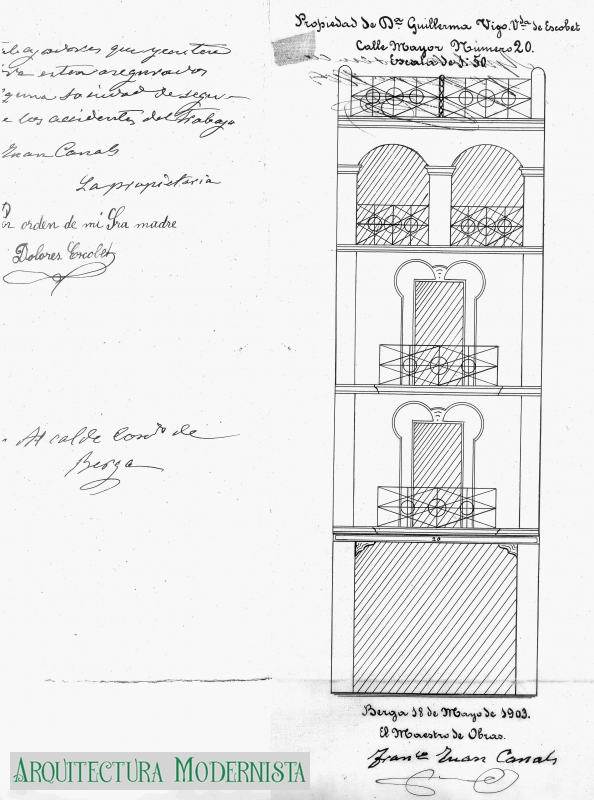 que
estén asegurados
Sociedad de Segu-
e los accidentes del trabajo
Juan Canals
La propietaria
Por orden de mi Sra madre
Dolores Escobet
Alcalde Const. de
Berga
Propiedad de Dª Guillerma Vigo Vda de Escobet
Calle Mayor Número 20.
Escala de 1:50
20
Berga 18 de Mayo de 1903.
El Maestro de Obras.
Franco Juan Canals
ARQUITECTURA MODERNISTA